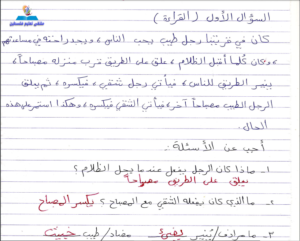 ملتقى تعليم فلسطين
السؤال الأول (القراءة)
كان في قريتنا رجل طيب يحب الناس، ويجد راحته في مساعدتهم
، وكان كلما أقبل الظلام، علق على الطريق قرب منزله مصباحاً،
ينير الطريق للناس، فيأتي رجل شقي، فيكسره، ثم يعلق
الرجل الطيب مصباحاً آخر، فيأتي الشقي فيكسره، وهكذا استمر على هذه
الحال.
أجب عن الأسئلة:
١- ماذا كان الرجل يفعل عندما يحل الظلام؟
يعلق على الطريق مصباحاً
٢- ما الذي كان يفعله الشقي مع المصباح؟ يكسر المصباح
٣- ما مرادف/ ينير يضيء مضاد/ طيب خبيث